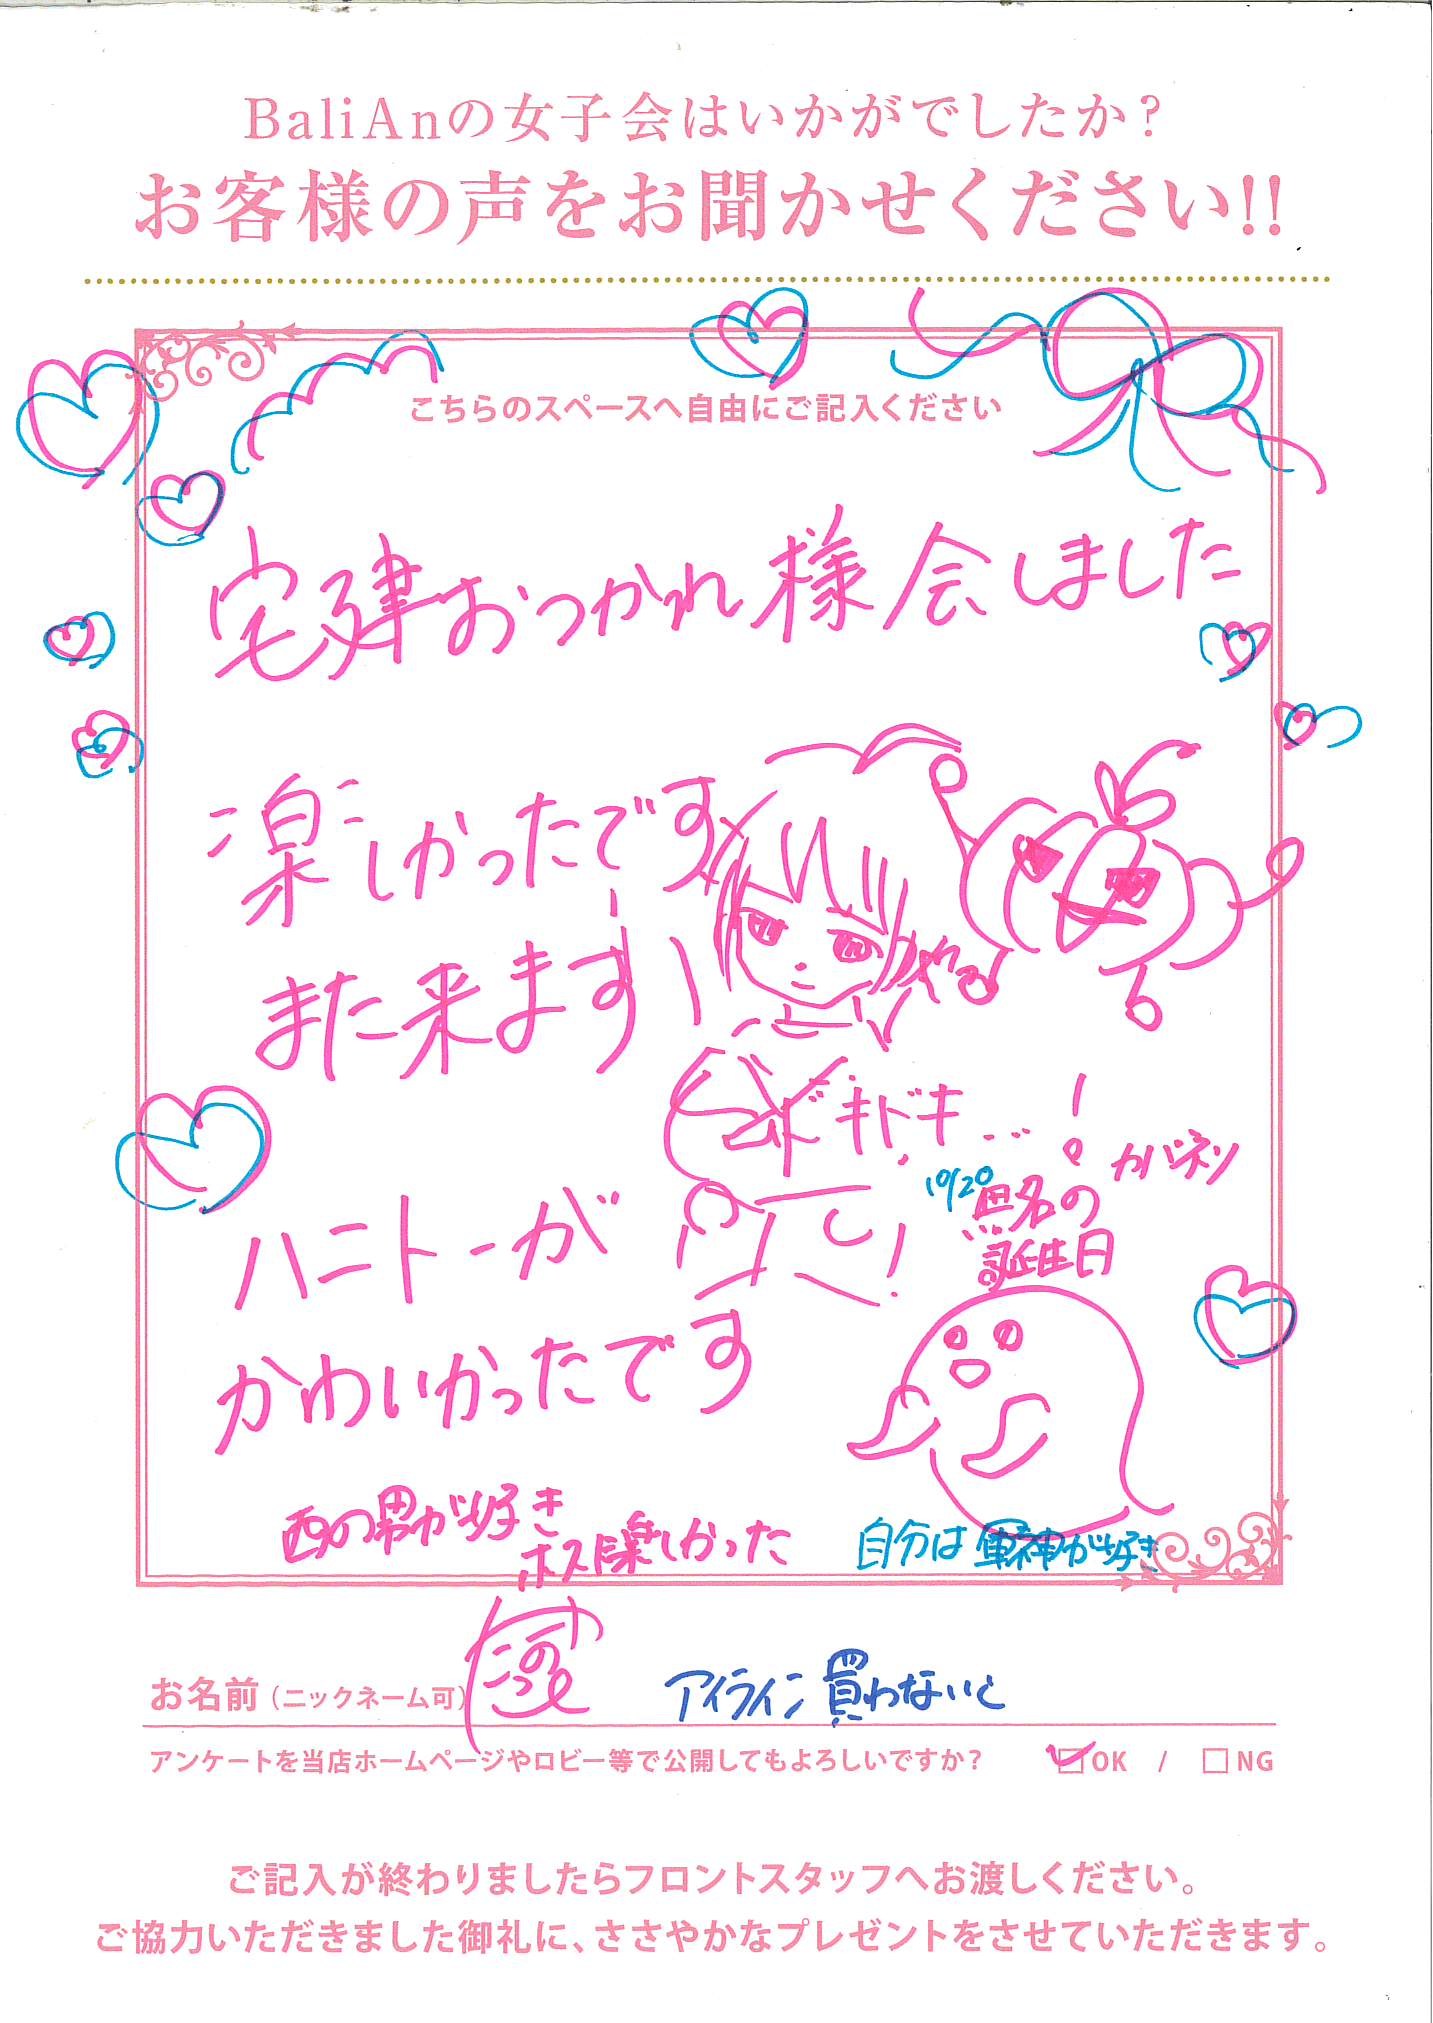 BaliAnの女子会はいかがでしたか?
お客様の声をお聞かせください!!
こちらのスペースへ自由にご記入ください
宅建おつかれ様会しました
楽しかったです
また来ます!
ドキドキ...!
カバネリ
10/20
無名の
誕生日
ハニトーが
かわいかったです
酉の男が好き
楽しかった
自分は軍神が好き
お名前(ニックネーム可)
アイライン買わないと
アンケートを当店ホームページやロビー等で公開してもよろしいですか? ☑OK / □NG
ご記入が終わりましたらフロントスタッフへお渡しください。
ご協力いただきました御礼に、ささやかなプレゼントをさせていただきます。